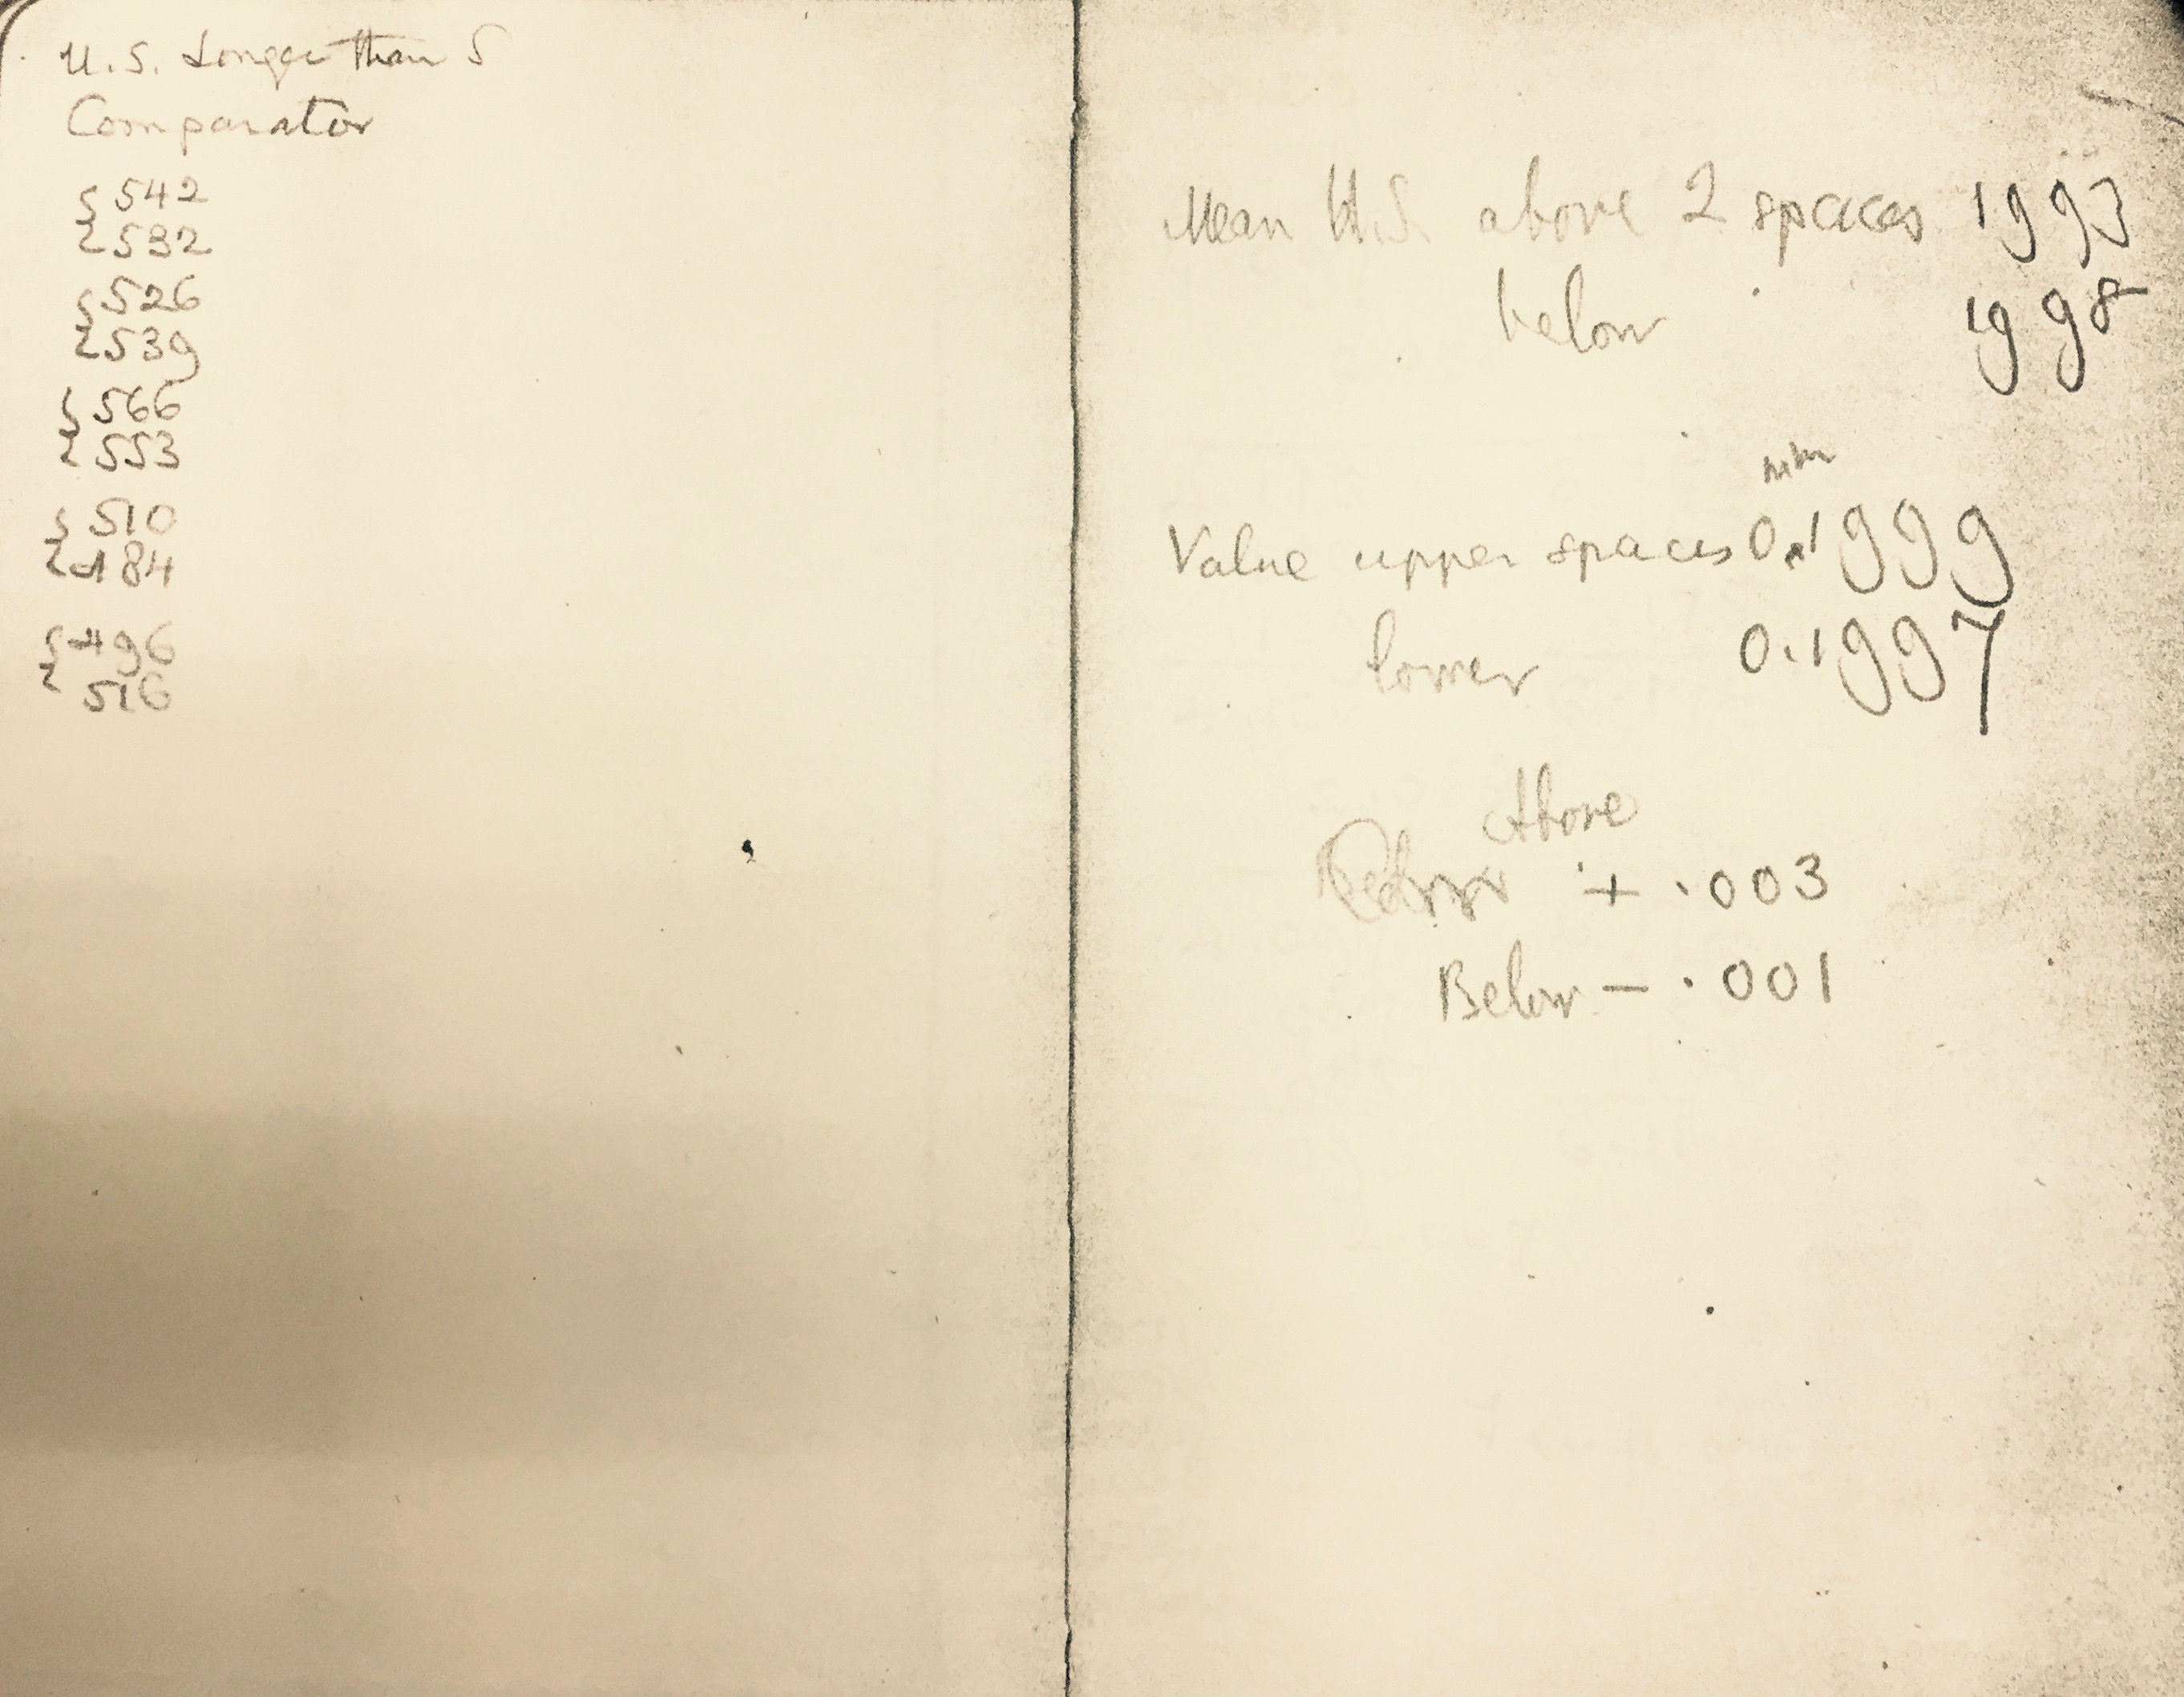 U.S. Longer than S
Comparator
{ 542
532
{ 526
539
{ 566
553
{ 510
484
{ 496
516
Mean U.S. above 2 spaces 1993
below 1998
mm
Value upper spaces 0.1999
lower 0.1997
Above
+ .003
Below - .001